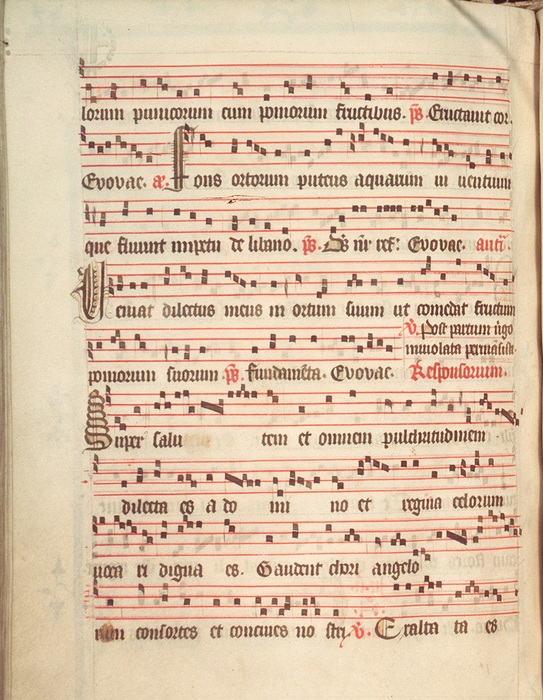 lorum punicorum cum pomorum fructibus. ps. Eructauit cor.
Evovae. a. Fons ortorum puteus aquarum ui uentium
que fluunt impetu de libano. ps. Ds nr ref: Evovae. anti.
Ueniat dilectus meus in ortum suum ut comedat fructum
V. Post partum ugo
inuiolata permasisti.
pomorum suorum ps. fundameta. Evovae. Responsorium.
Super salu tem et omnem pulchritudinem
dilecta es a do mi no et regina celorum
uoca ri digna es. Gaudent chori angelo
rum consortes et conciues no stri. V. Exalta ta es